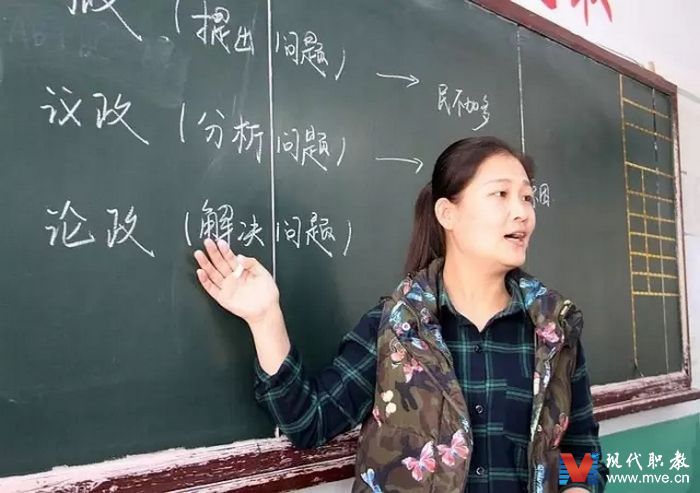 政（提出问题）→
民不加多
议政（分析问题）→
原因
论政（解决问题）
现代职教
www.mve.cn